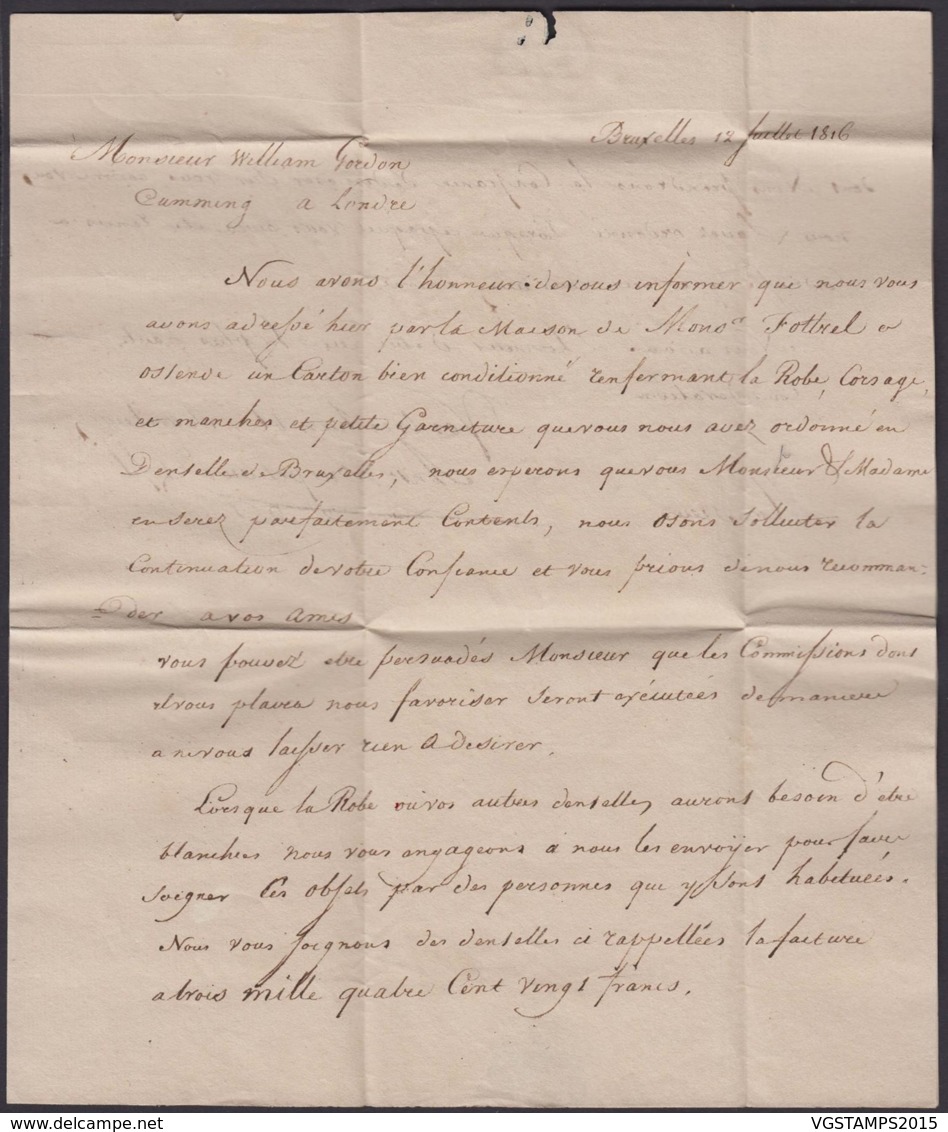 Bruxelles 12 Juillet 1816
Monsieur William Gordon
Cumming a Londre
Nous avons l'honneur de vous informer que nous vous
avons adressé hier par la Maison de Monsr Fottrel a
ostende un Carton bien conditionné renfermant la Robe, Corsage,
et manches et petite Garniture que vous nous avez ordonné en
Dentelle de Bruxelles, nous esperons que vous Monsieur & Madame
en serez parfaitement Contents, nous osons solliciter la
Continuation de votre Confiance et vous prions de nous recomman-
der a vos Amis
vous pouvez etre persuadés Monsieur que les Commissions dont
il vous plaira nous favoriser seront exécutées de maniere
a ne vous laisser rien A desirer.
Lorsque la Robe ou vos autres dentelles auront besoin d'etre
blanchies nous vous engageons a nous les envoyer pour faire
soigner Ces objets par des personnes que y sont habituées.
Nous vous joignons des dentelles ci rappellées la facture
a trois mille quatre Cent vingt francs.
www.delcampe.net
VGSTAMPS2015